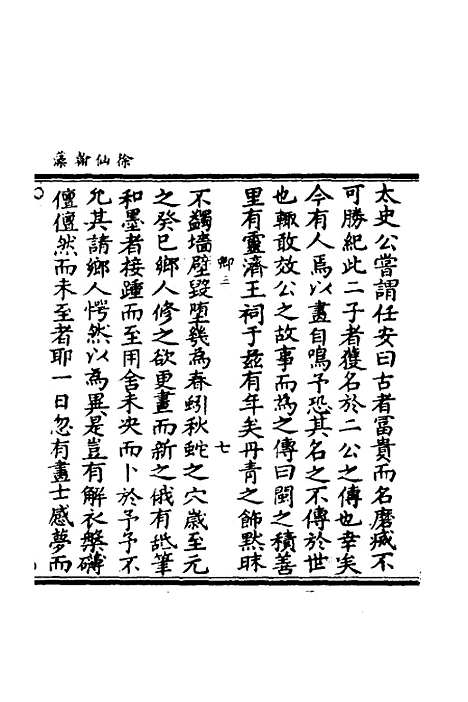 太史公嘗謂任安曰古者富貴而名磨滅不
可勝紀此二子者獲名於二公之傳也幸矣
今有人焉以畫自鳴予恐其名之不傳於世
也輙敢效公之故事而為之傳曰閩之積善
里有靈濟王祠于兹有年矣丹青之飾黙昧
卿三
七
不蠲墻壁毀堕幾為春蚓秋蛇之穴歲至元
之癸巳鄉人修之欲更畫而新之俄有舐筆
和墨者接踵而至用舍未决而卜於予予不
允其請鄉人愕然以為異是豈有解衣槃礴
儃儃然而未至者耶一日忽有畫士感夢而
徐仙翰藻